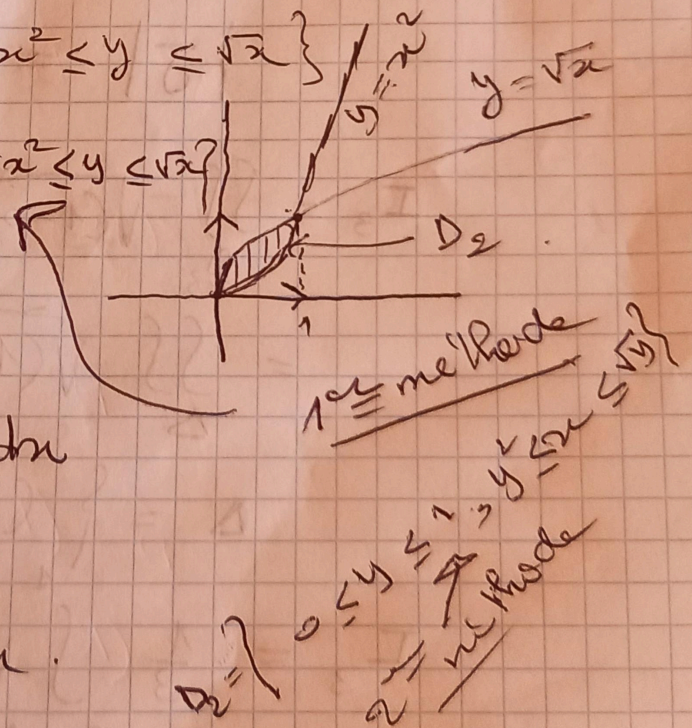 x² ≤ y ≤ √x}
y = x²
y = √x
x² ≤ y ≤ √x}
D₂
1
1ère méthode
dx
D₂ = { 0 ≤ y ≤ 1, y² ≤ x ≤ √y}
2è méthode